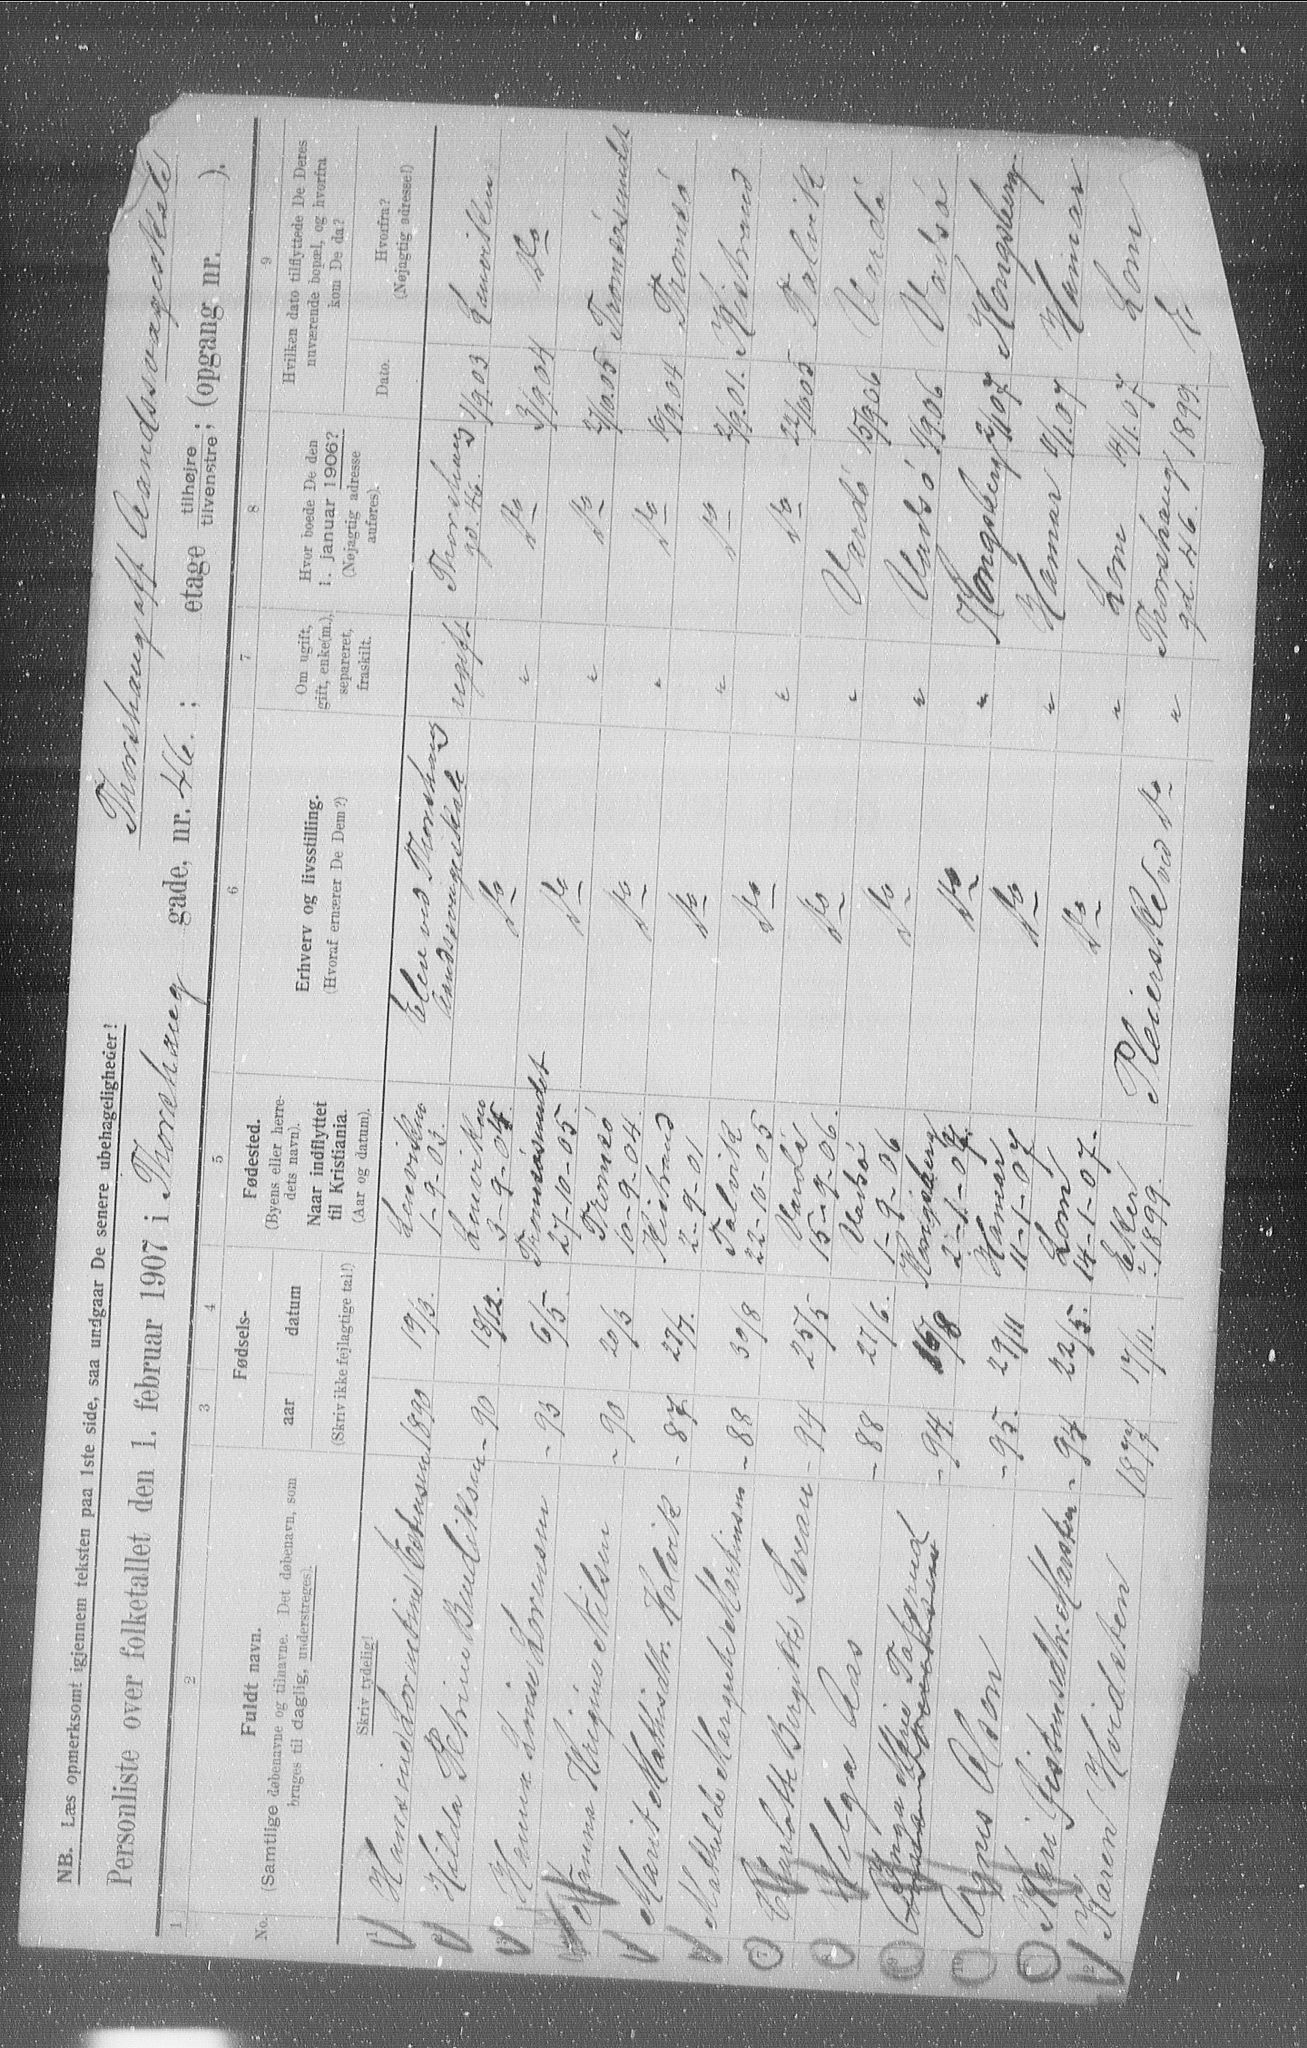 NB. Læs opmerksomt igjennem teksten paa 1ste side, saa undgaar De senere ubehageligheder!
Thorshaug off Aandssvageskole
Personliste over folketallet den 1. februar 1907 i Thorshaug gade, nr. 46. ; etage tilhøjre tilvenstre ; (opgang nr. ).
1 2 3 4 5 6 7 8 9
No.
Fuldt navn.
(Samtlige døbenavne og tilnavne. Det døbenavn, som
bruges til daglig, understreges).
Fødsels-
aar datum
Fødested.
(Byens eller herre-
dets navn).
Naar indflyttet
til Kristiania.
(Aar og datum).
Erhverv og livsstilling.
(Hvoraf ernærer De Dem?)
Om ugift,
gift, enke(m.),
separeret,
fraskilt.
Hvor boede De den
1. januar 1906?
(Nøjagtig adresse
anføres).
Hvilken dato tilflyttede De Deres
nuværende bopæl, og hvorfra
kom De da?
Dato.
Hvorfra?
(Nøjagtig adresse!)
Skriv tydelig!
(Skriv ikke fejlagtige tal!)
1 1890 19/3. 1-9-03. Elev ved Thorshaug Aandssvageskole ugift Thorshaug gd. 46. 1/9.03
Hilda Petrine Bendiksen - 90 13/12. 3-9-04. do " do 3/9.04 do
Hanna Lovise Lorensen - 93 6/5 Tromsøsundet 27-10-05 do " do 27/10.05 Tromsøsundet
Nanna Nilsen - 90 20/3 Tromsø 10-9-04. do " do 10/9.04 Tromsø
Marit Mathisdtr. Kolvik - 87 27/7. Kistrand 2-9-01 do " do 2/9.01. Kistrand
Mathilde Margrete Martinsen - 88 30/8 Talvik 22-10-05 do " do 22/10.05 Talvik
7 Charlotte Birgitte - 94 25/5 Vardø 15-9-06. do " Vardø 15/9.06 Vardø
8 Helga Aas - 88 27/6. Vadsø 1-9-06 do " Vadsø 1/9.06 Vadsø
9 Inga Marie - 94. Kongsberg 2-1-07. do " Kongsberg 2/1.07 Kongsberg
10 Agnes Olson - 95. 29/11 Hamar 11-1-07 do " Hamar 11/1.07 Hamar
11 Kari - 94 22/5. Lom 14-1-07. do " Lom 14/1.07 Lom
12 Karen Hvidsten 1877 17/11. Eker - 1899. Pleierske ved do " Thorshaug gd. 46. 1899.